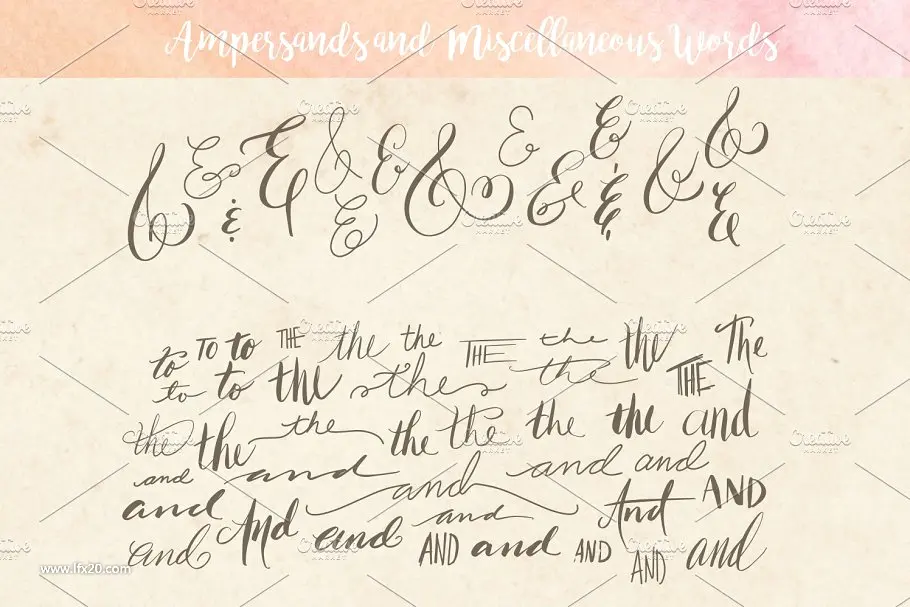 Ampersands and Miscellaneous Words
& & & & & & & & & & & & & & &
to TO to THE the the THE the the The
to to the the the THE
the the the the the the the and
and and and and and
and And and and And AND
and AND and AND AND and
www.lfx20.com
Creative Market